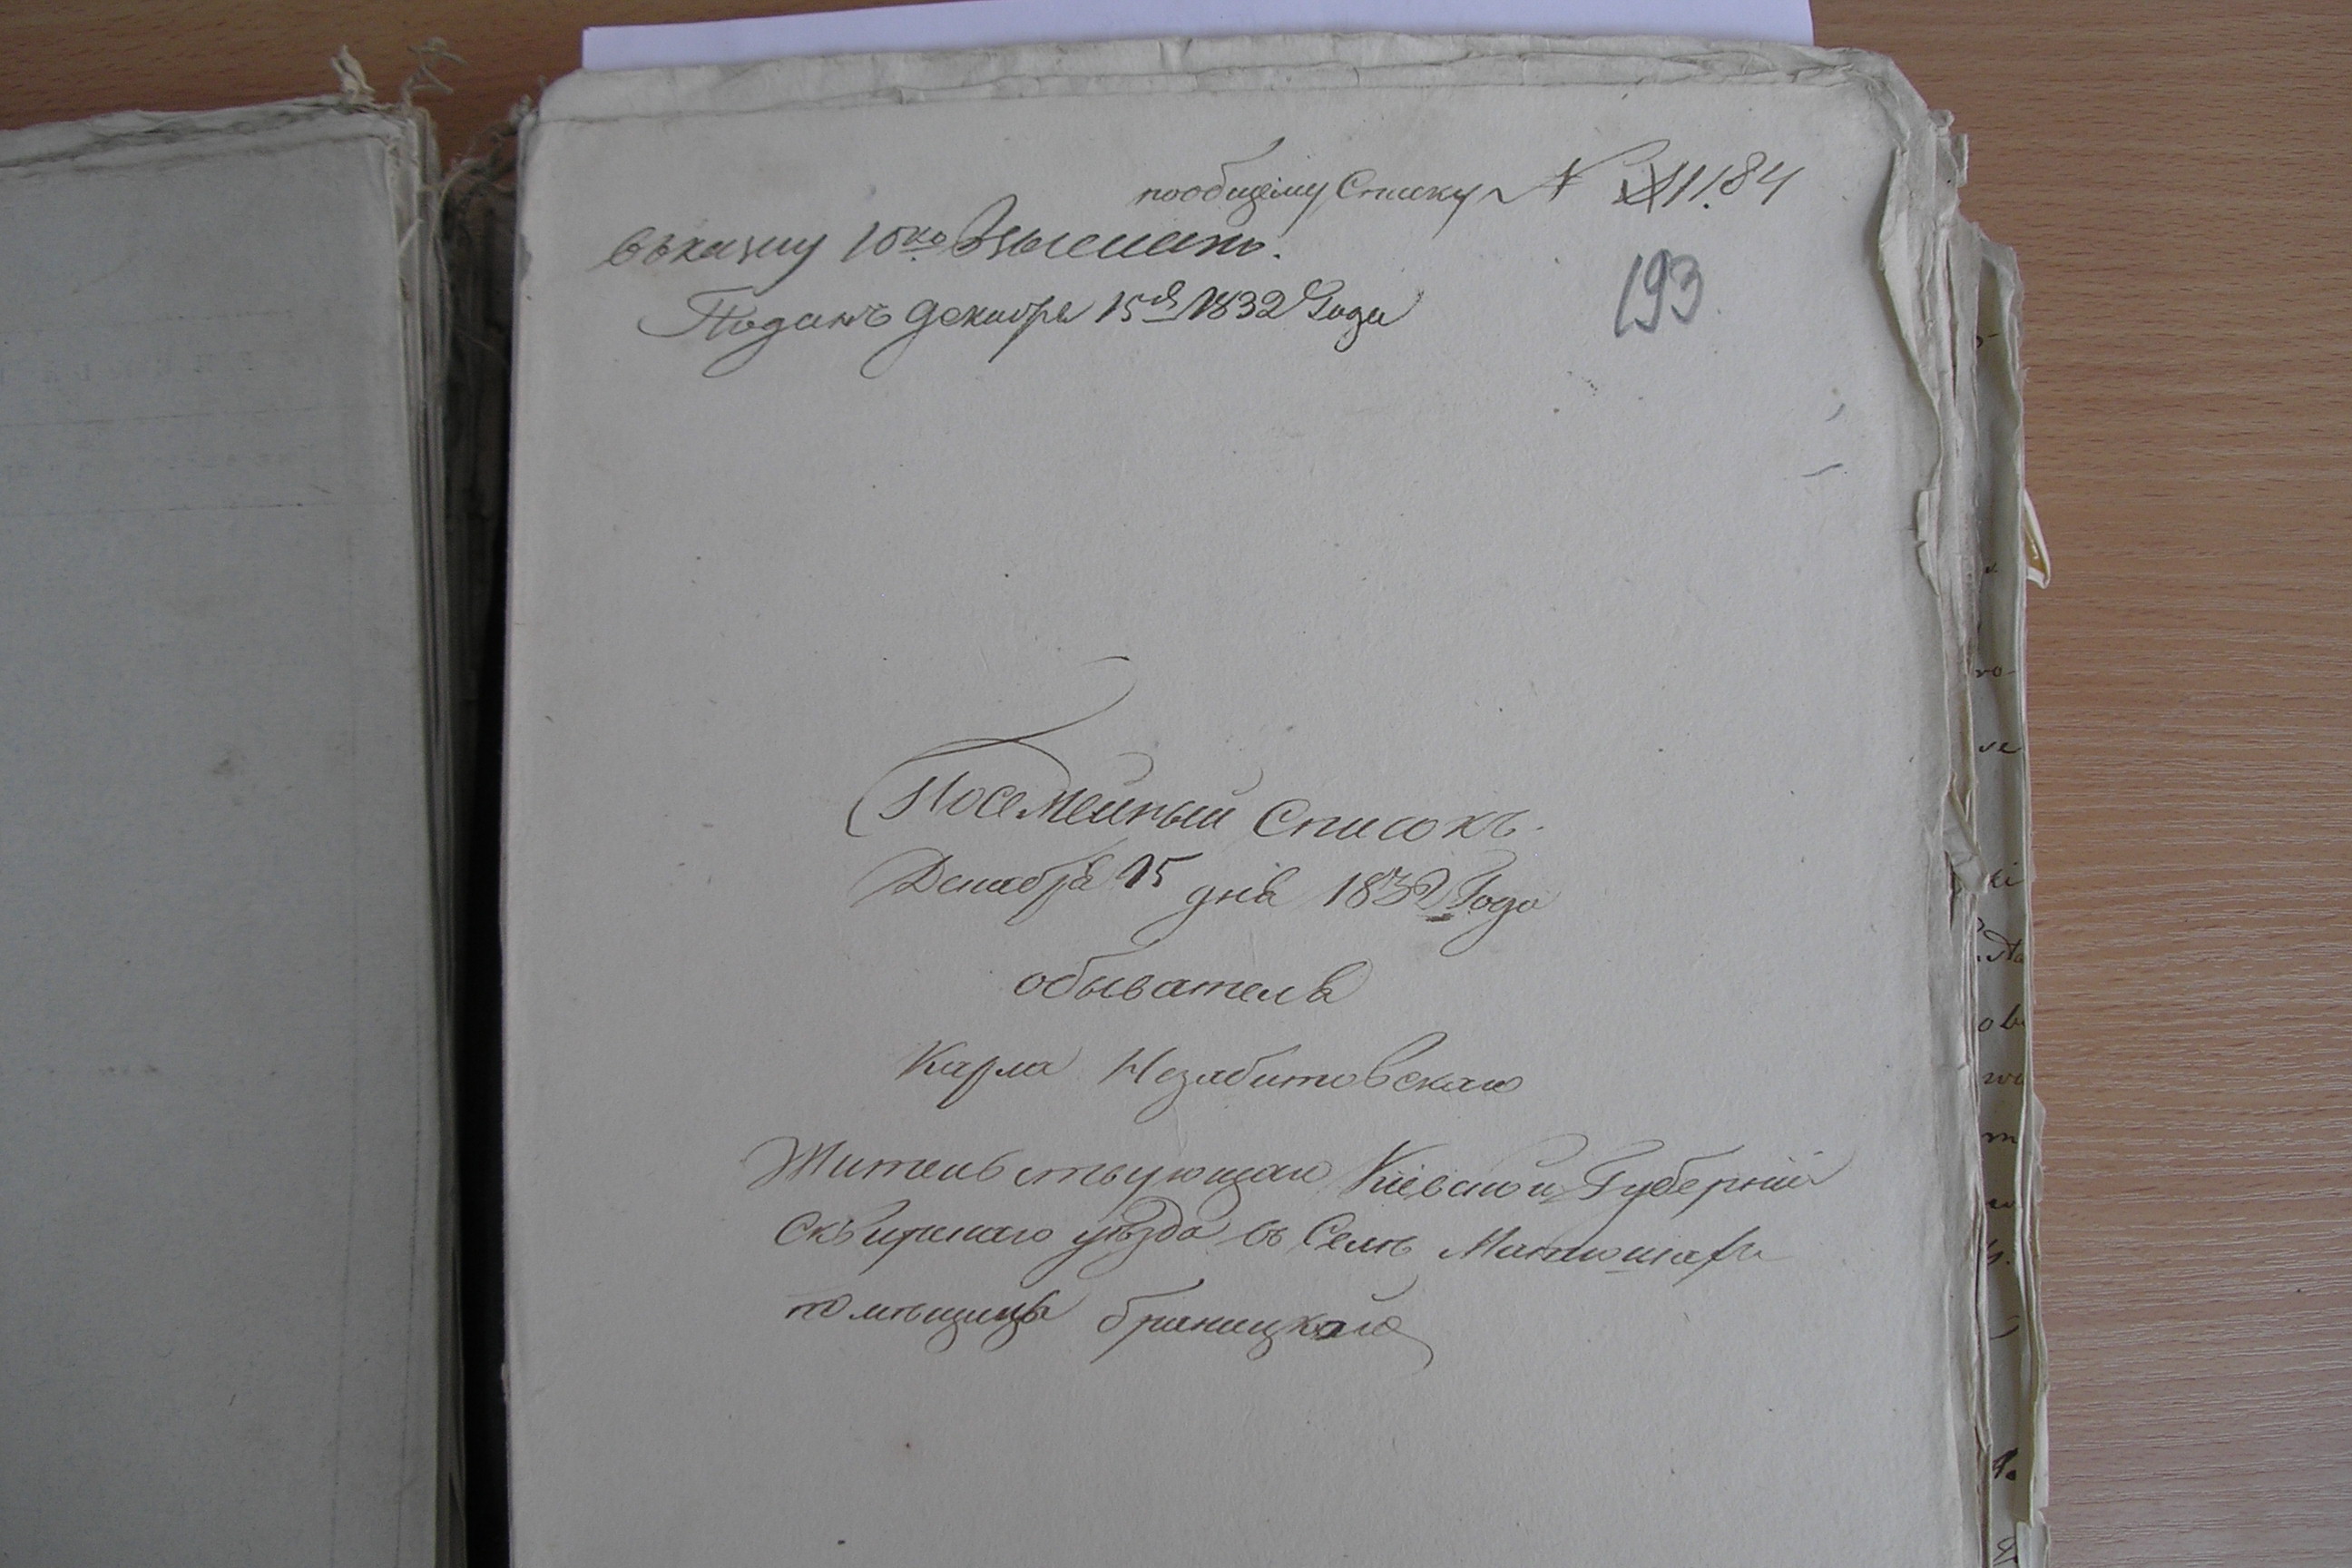 пообщему Списку N 1184
въказну 10ко Взысканъ.
Поданъ Декабря 15д 1832 Года
193
Посемейный Списокъ.
Декабря 15 дня 1832 Года
обывателя
Карла Незабитовскаго
Жительствующаго Кіевской Губерніи
Сквирскаго уѣзда въ Селѣ Матюшахъ
помѣщицы браницкой